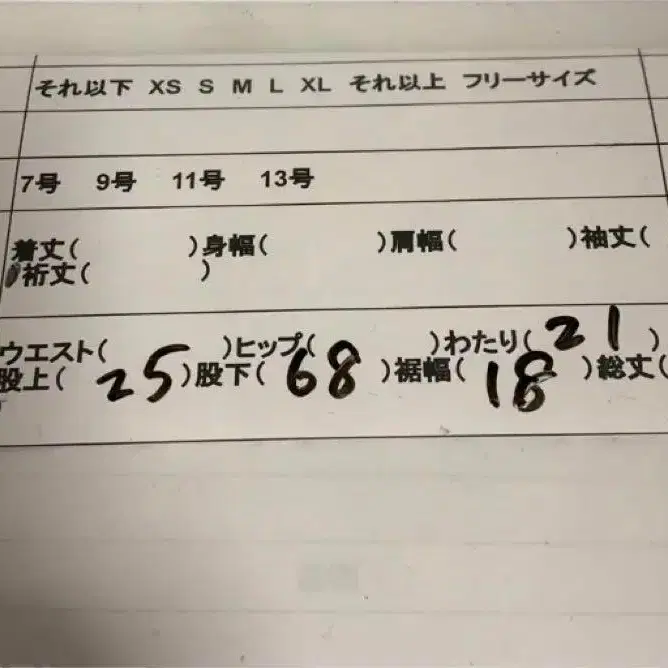 それ以下 XS S M L XL それ以上 フリーサイズ
7号 9号 11号 13号
着丈( )身幅( )肩幅( )袖丈(
裄丈( )
ウエスト( )ヒップ( )わたり( 21 )
股上( 25 )股下( 68 )裾幅( 18 )総丈(